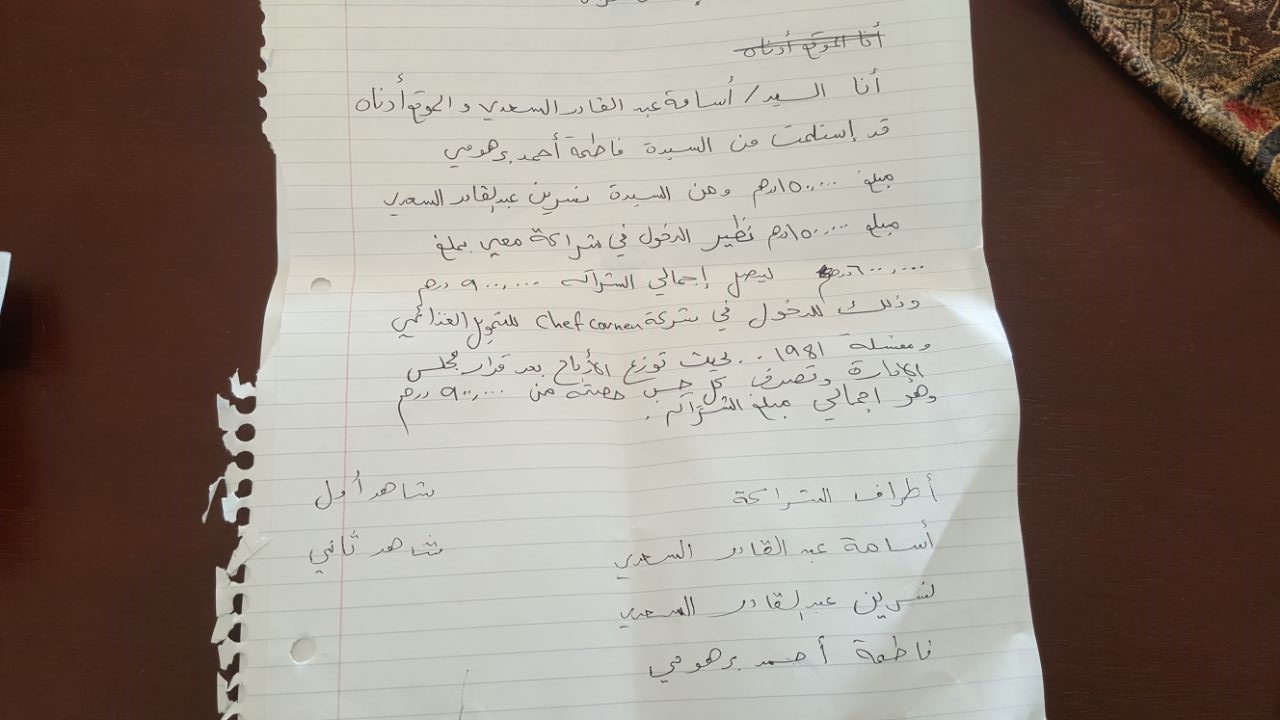 أنا الموقع أدناه
أنا السيد/ أسامة عبد القادر السعدي و الموقع أدناه
قد إستلمت من السيدة فاطمة أحمد برهومي
مبلغ ١٥٠,٠٠٠ درهم ومن السيدة نسرين عبدالقادر السعدي
مبلغ ١٥٠,٠٠٠ درهم نظير الدخول في شراكة معي بملغ
٦٠٠,٠٠٠ درهم ليصل إجمالي الشراكه ٩٠٠,٠٠٠ درهم
وذلك للدخول في شركة chef corner للتمويل الغذائي
ومغسلة ١٩٨١ .. بحيث توزع الأرباح بعد قرار مجلس
الإدارة وتصرف كل حسب حصته من ٩٠٠,٠٠٠ درهم
وهو إجمالي مبلغ الشراكه .
أطراف الشراكة
شاهد أول
أسامة عبد القادر السعدي
شاهد ثاني
نسرين عبدالقادر السعدي
فاطمة أحمد برهومي